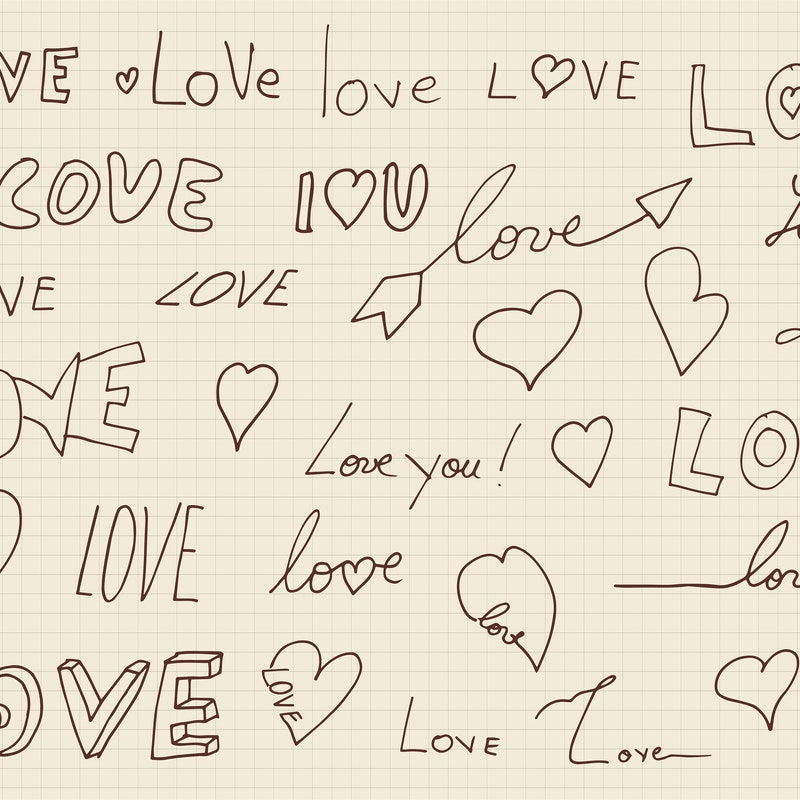 VE ♡ LoVe love L♡VE LO
LOVE I♡U love
VE LOVE
OVE
Love you! LO
LOVE lo♡e love lov
OVE LOVE LOVE Love